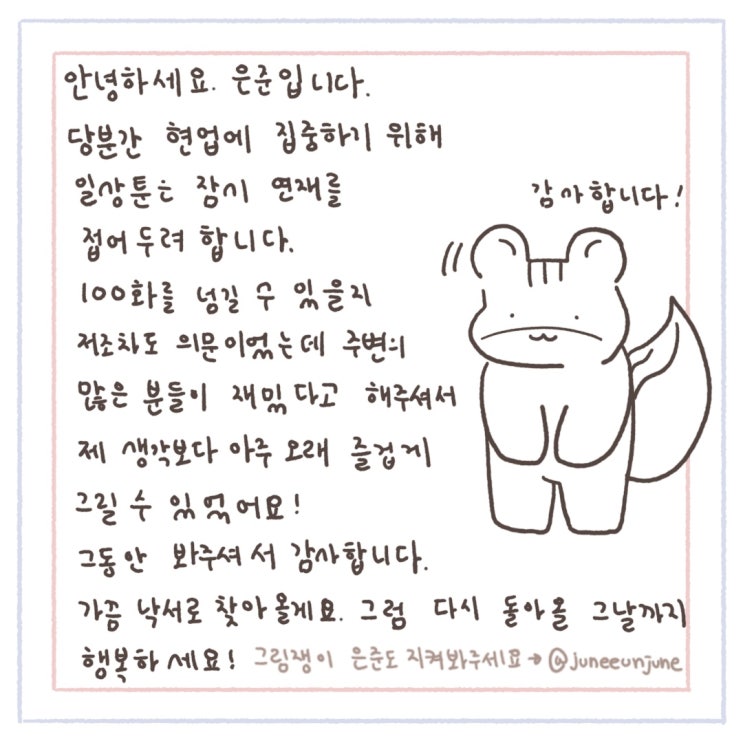 안녕하세요. 은준입니다.
당분간 현업에 집중하기 위해
일상툰은 잠시 연재를
감사합니다!
접어두려 합니다.
100화를 넘길 수 있을지
저조차도 의문이었는데 주변의
많은 분들이 재밌다고 해주셔서
제 생각보다 아주 오래 즐겁게
그릴 수 있었어요!
그동안 봐주셔서 감사합니다.
가끔 낙서로 찾아올게요. 그럼 다시 돌아올 그날까지
행복하세요! 그림쟁이 은준도 지켜봐주세요 → @juneeunjune